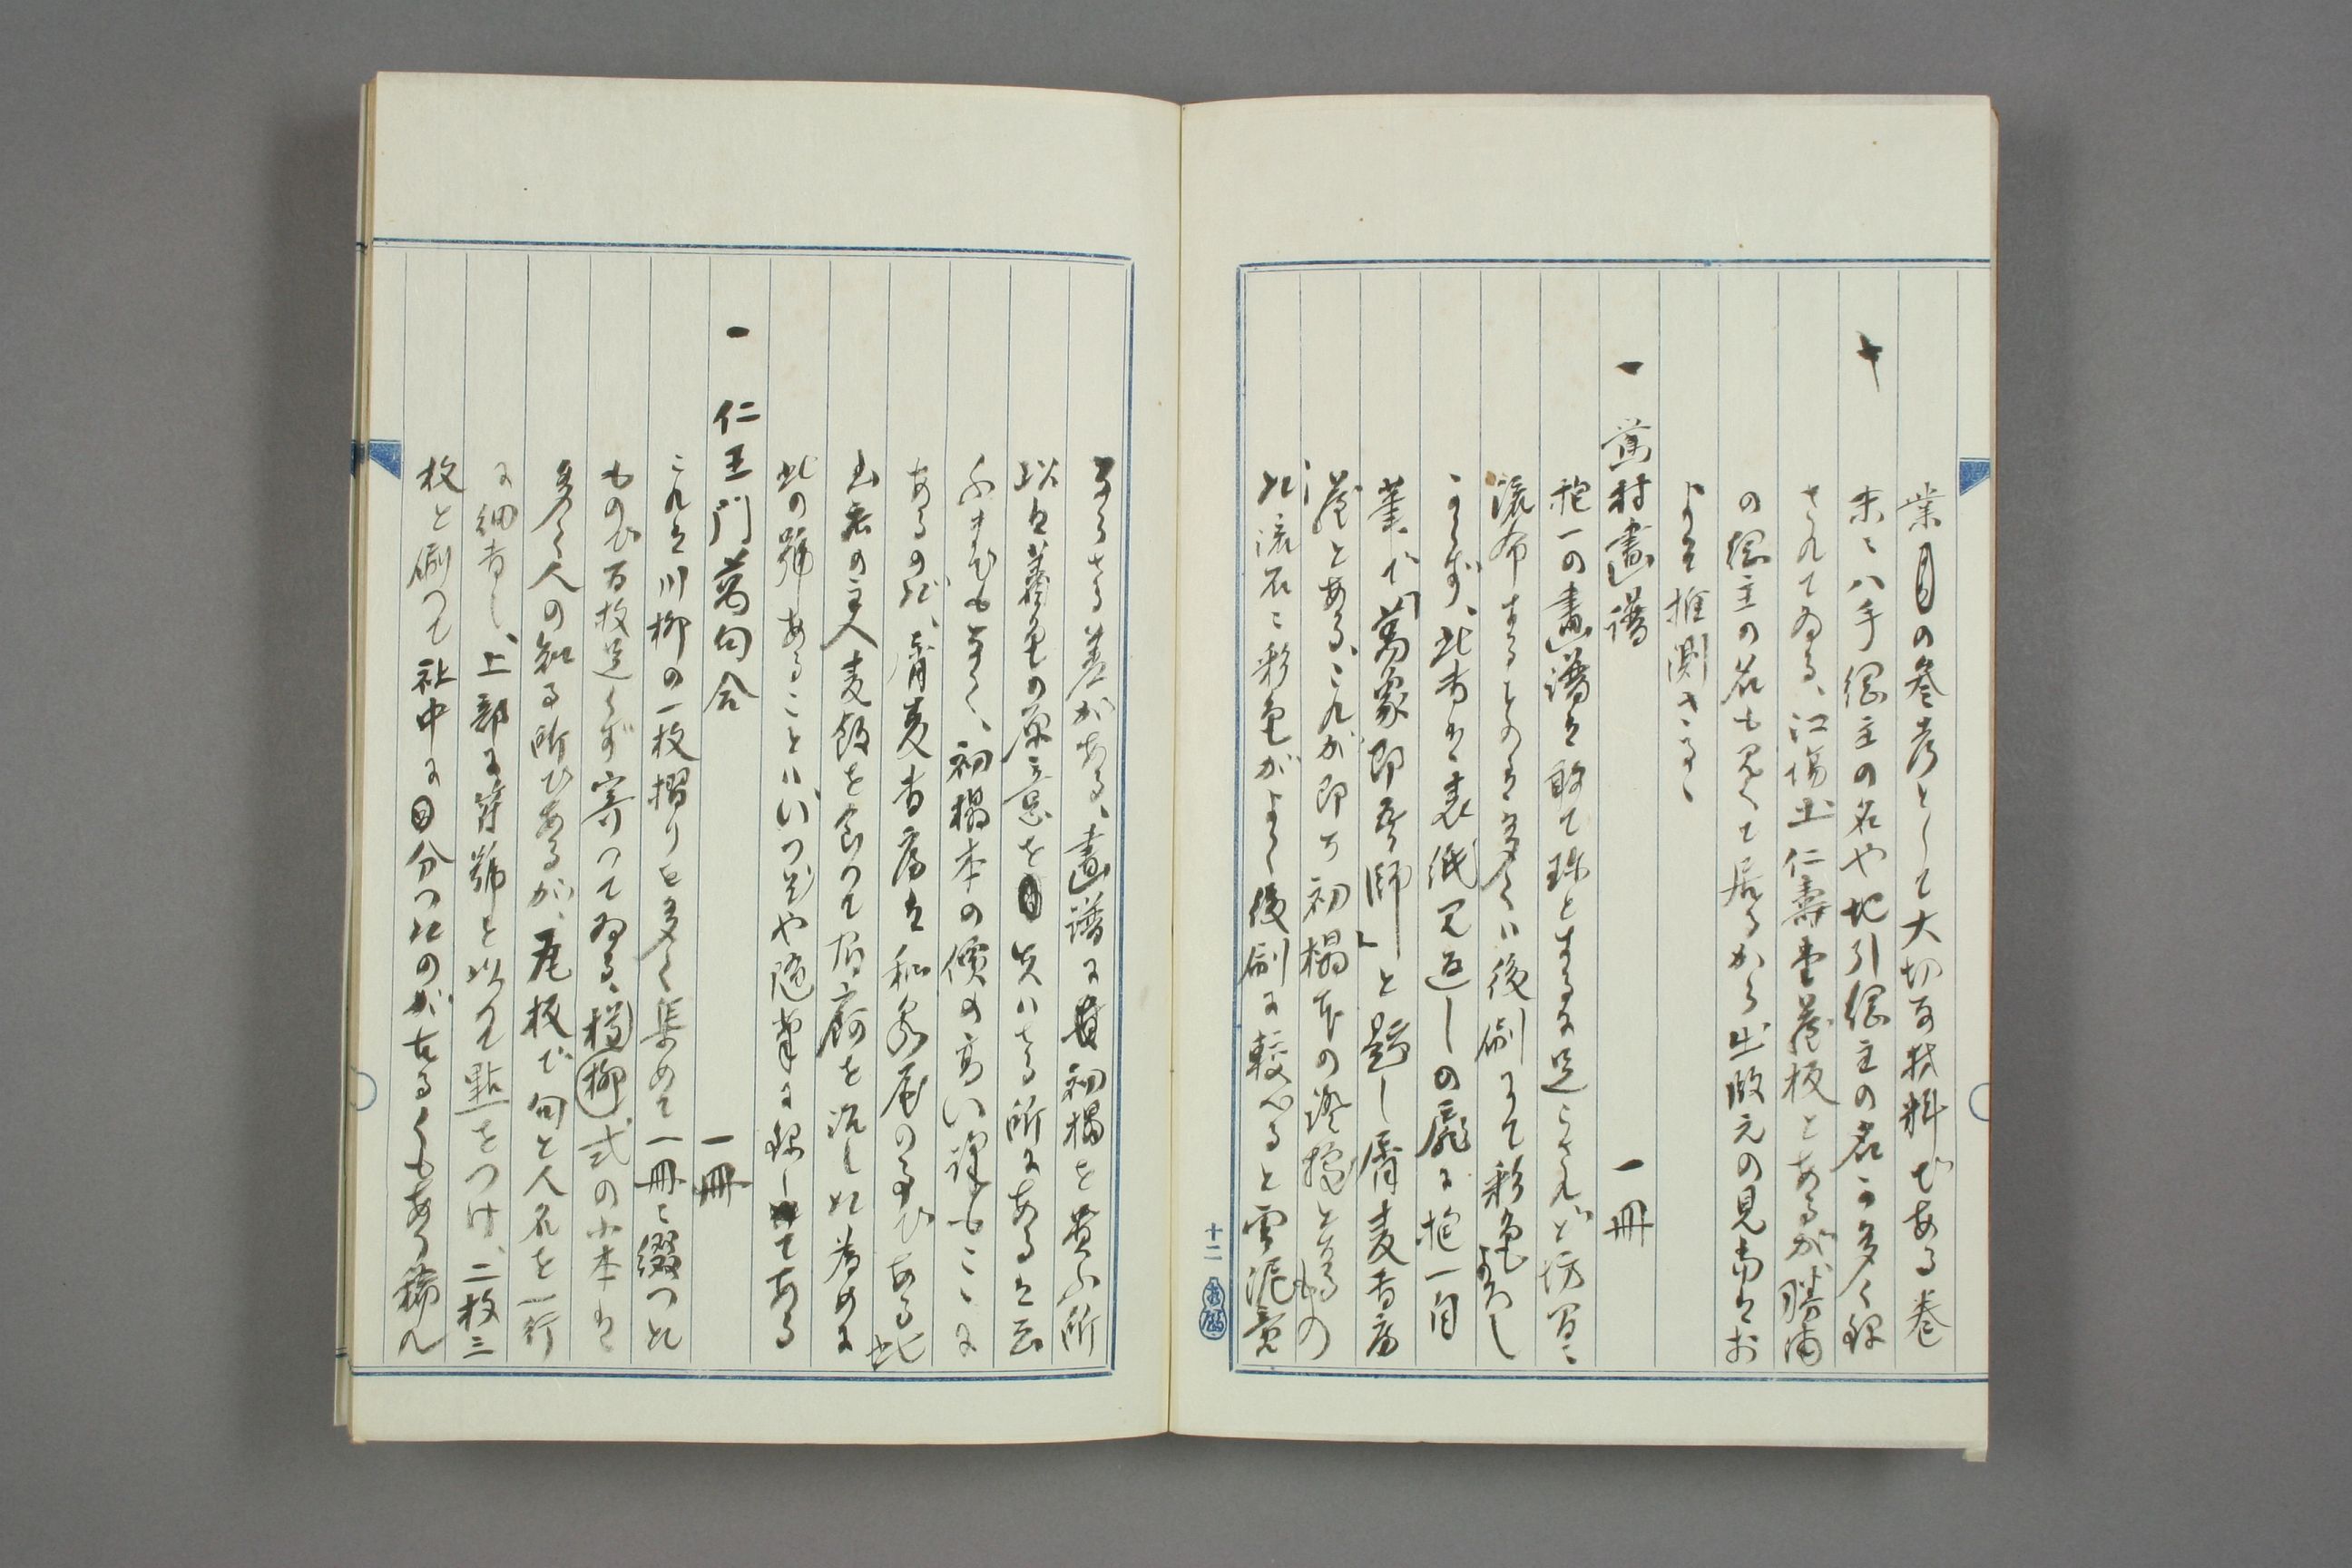 業の参考として大切な材料である巻
末に八手網主の名や地引網主の名が多く録
されてゐる、江場土仁壽堂蔵板とあるが、勝浦
の網主の名も見へて居るから出版元の見当はお
よそ推測さるゝ
一 鶯村畫譜 一冊
抱一の畫譜は敢て珍とするに足らざれど坊間に
流布するものは多くハ後刷にて彩色よろし
からず、此書は表紙見返しの扉に抱一自
筆で「萬象即吾師」と題し屠麦書房
蔵とある、これが即ち初榻本の證據となるもの
此流石に彩色がよく後刷に較べると雲泥竟
ならさる差がある、畫譜に初榻を貴ふ所
以は着色の原意を失ハさる所にあるは云
ふまでも無く、初榻本の價の高い訳もこゝに
あるのだ、屠麦書房は和泉屋の事である此
書房の主人麦飯を食つて屠腐を流した為めに
此の号あることハいつぞや随筆に録して
ある
一 仁王門萬句合 一冊
これは川柳の一枚摺りを多く集めて一冊に綴つた
もので百枚足らず寄つてゐる、樽柳式の小本は
多く人の知る所であるが、尾板で句と人名を一行
に細書し、上部に符號を以て點をつけ、二枚三
枚と刷つて社中に分つたのが古るくもあり稀れ
十二